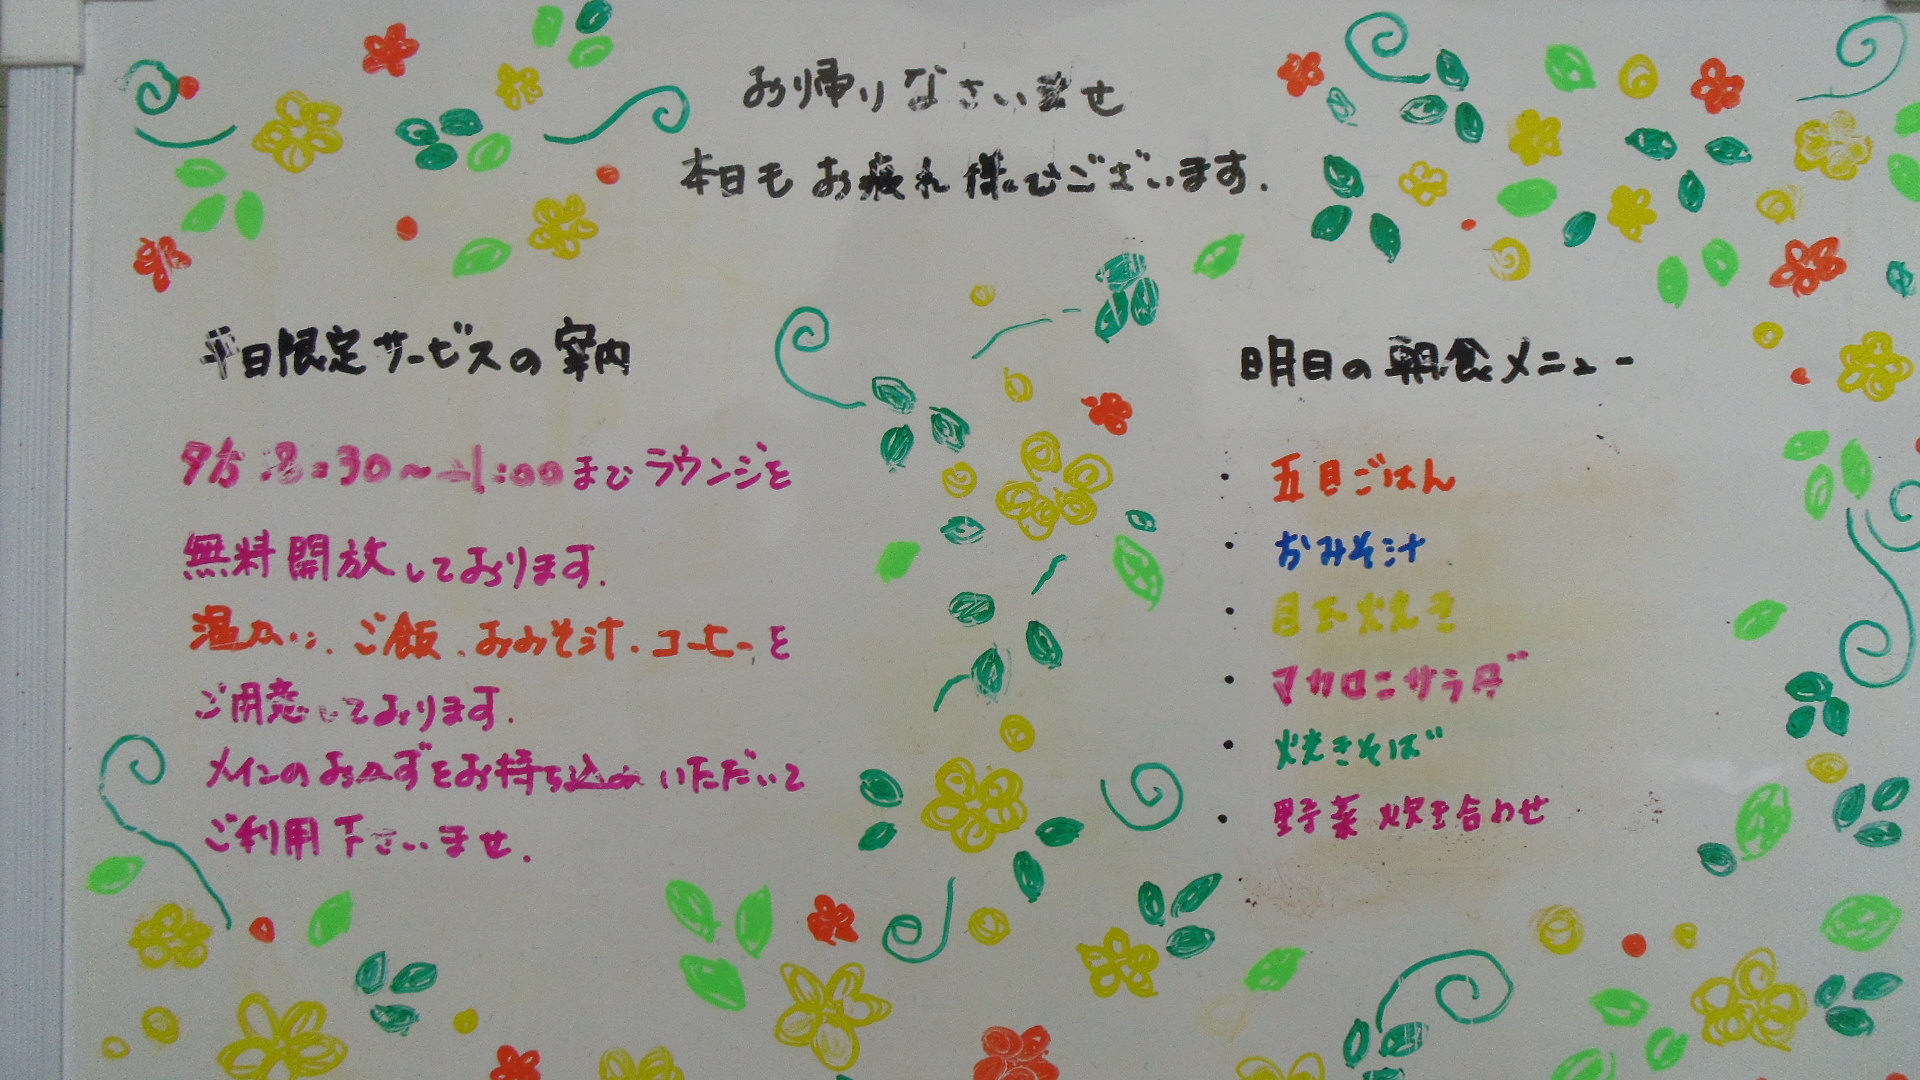 お帰りなさいませ
本日もお疲れ様でございます.
平日限定サービスの案内
夕方:8:30〜11:00までラウンジを
無料開放しております.
温かい、ご飯、おみそ汁、コーヒーを
ご用意しております.
メインのおかずをお持ち込みいただいて
ご利用下さいませ.
明日の朝食メニュー
・五目ごはん
・おみそ汁
・目玉焼き
・マカロニサラダ
・焼きそば
・野菜炊き合わせ